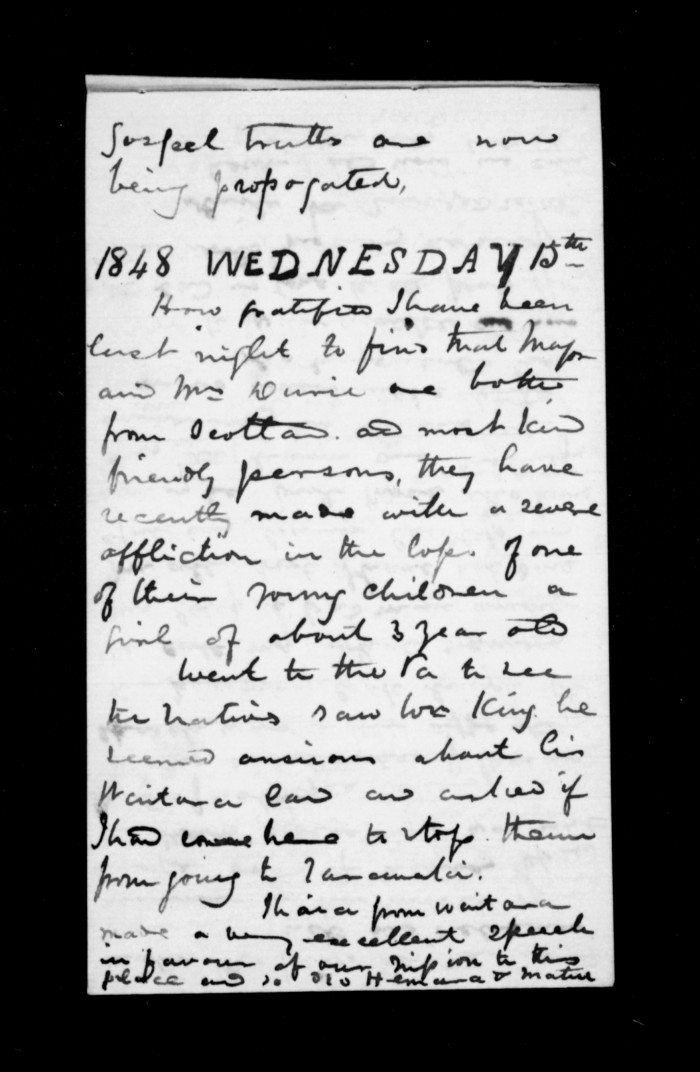 Gospel truths are now
being propogated,
1848 WEDNESDAY 15th
How gratified I have been
last night to find that Major
and Mrs Durie are both
from Scotland. and most kind
friendly persons, they have
recently made with a severe
affliction in the loss. of one
of their young children a
girl of about 3 year old
Went to the Pa to see
the Natives saw Wm King. he
seemed anxious about his
Waitara land and asked if
I had come here to stop them
from going to Taranaki.
Ihaia from Waitara
made a very excellent speech
in favour of our mission to this
place and so did &